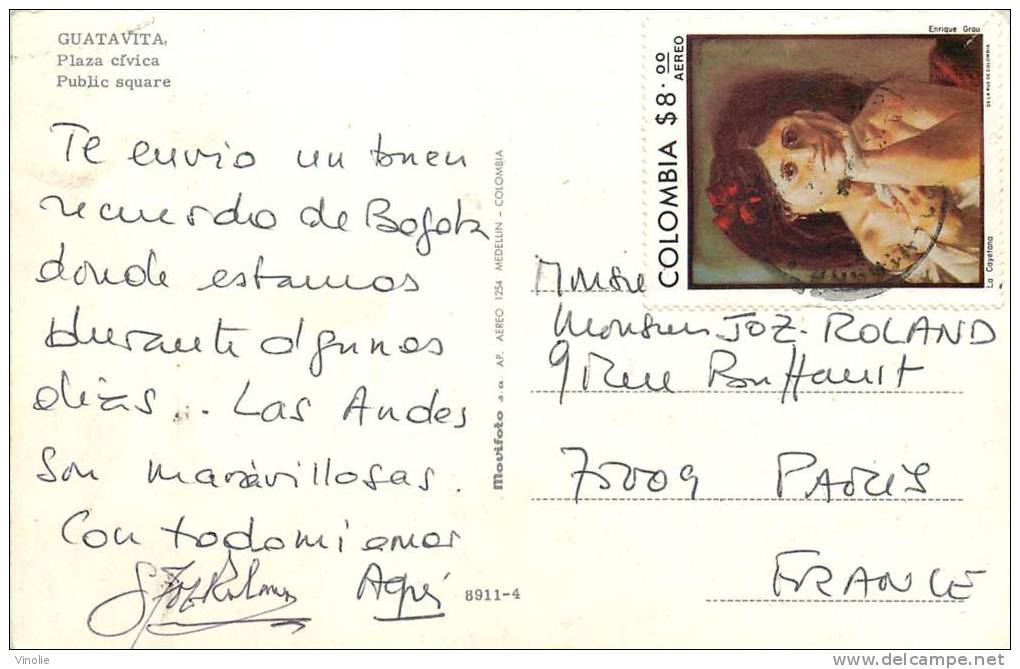 GUATAVITA,
Plaza cívica
Public square
Te envio un buen
recuerdo de Bogota
donde estamos
durante algunos
dias... Las Andes
son maravillosas.
Con todo mi amor
Agnès
8911-4
Movifoto s.a. AP. AEREO 1254 MEDELLIN - COLOMBIA
COLOMBIA $8.00
AEREO
Enrique Grau
DE LA RUE DE COLOMBIA
La Cayetana
Monsie
Monsieur JOZ. ROLAND
9 Rue
75009 PARIS
FRANCE
Vinolie
delcampe.net